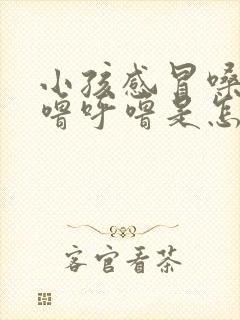 小孩感冒嗓
噜呼噜是怎
客官看茶